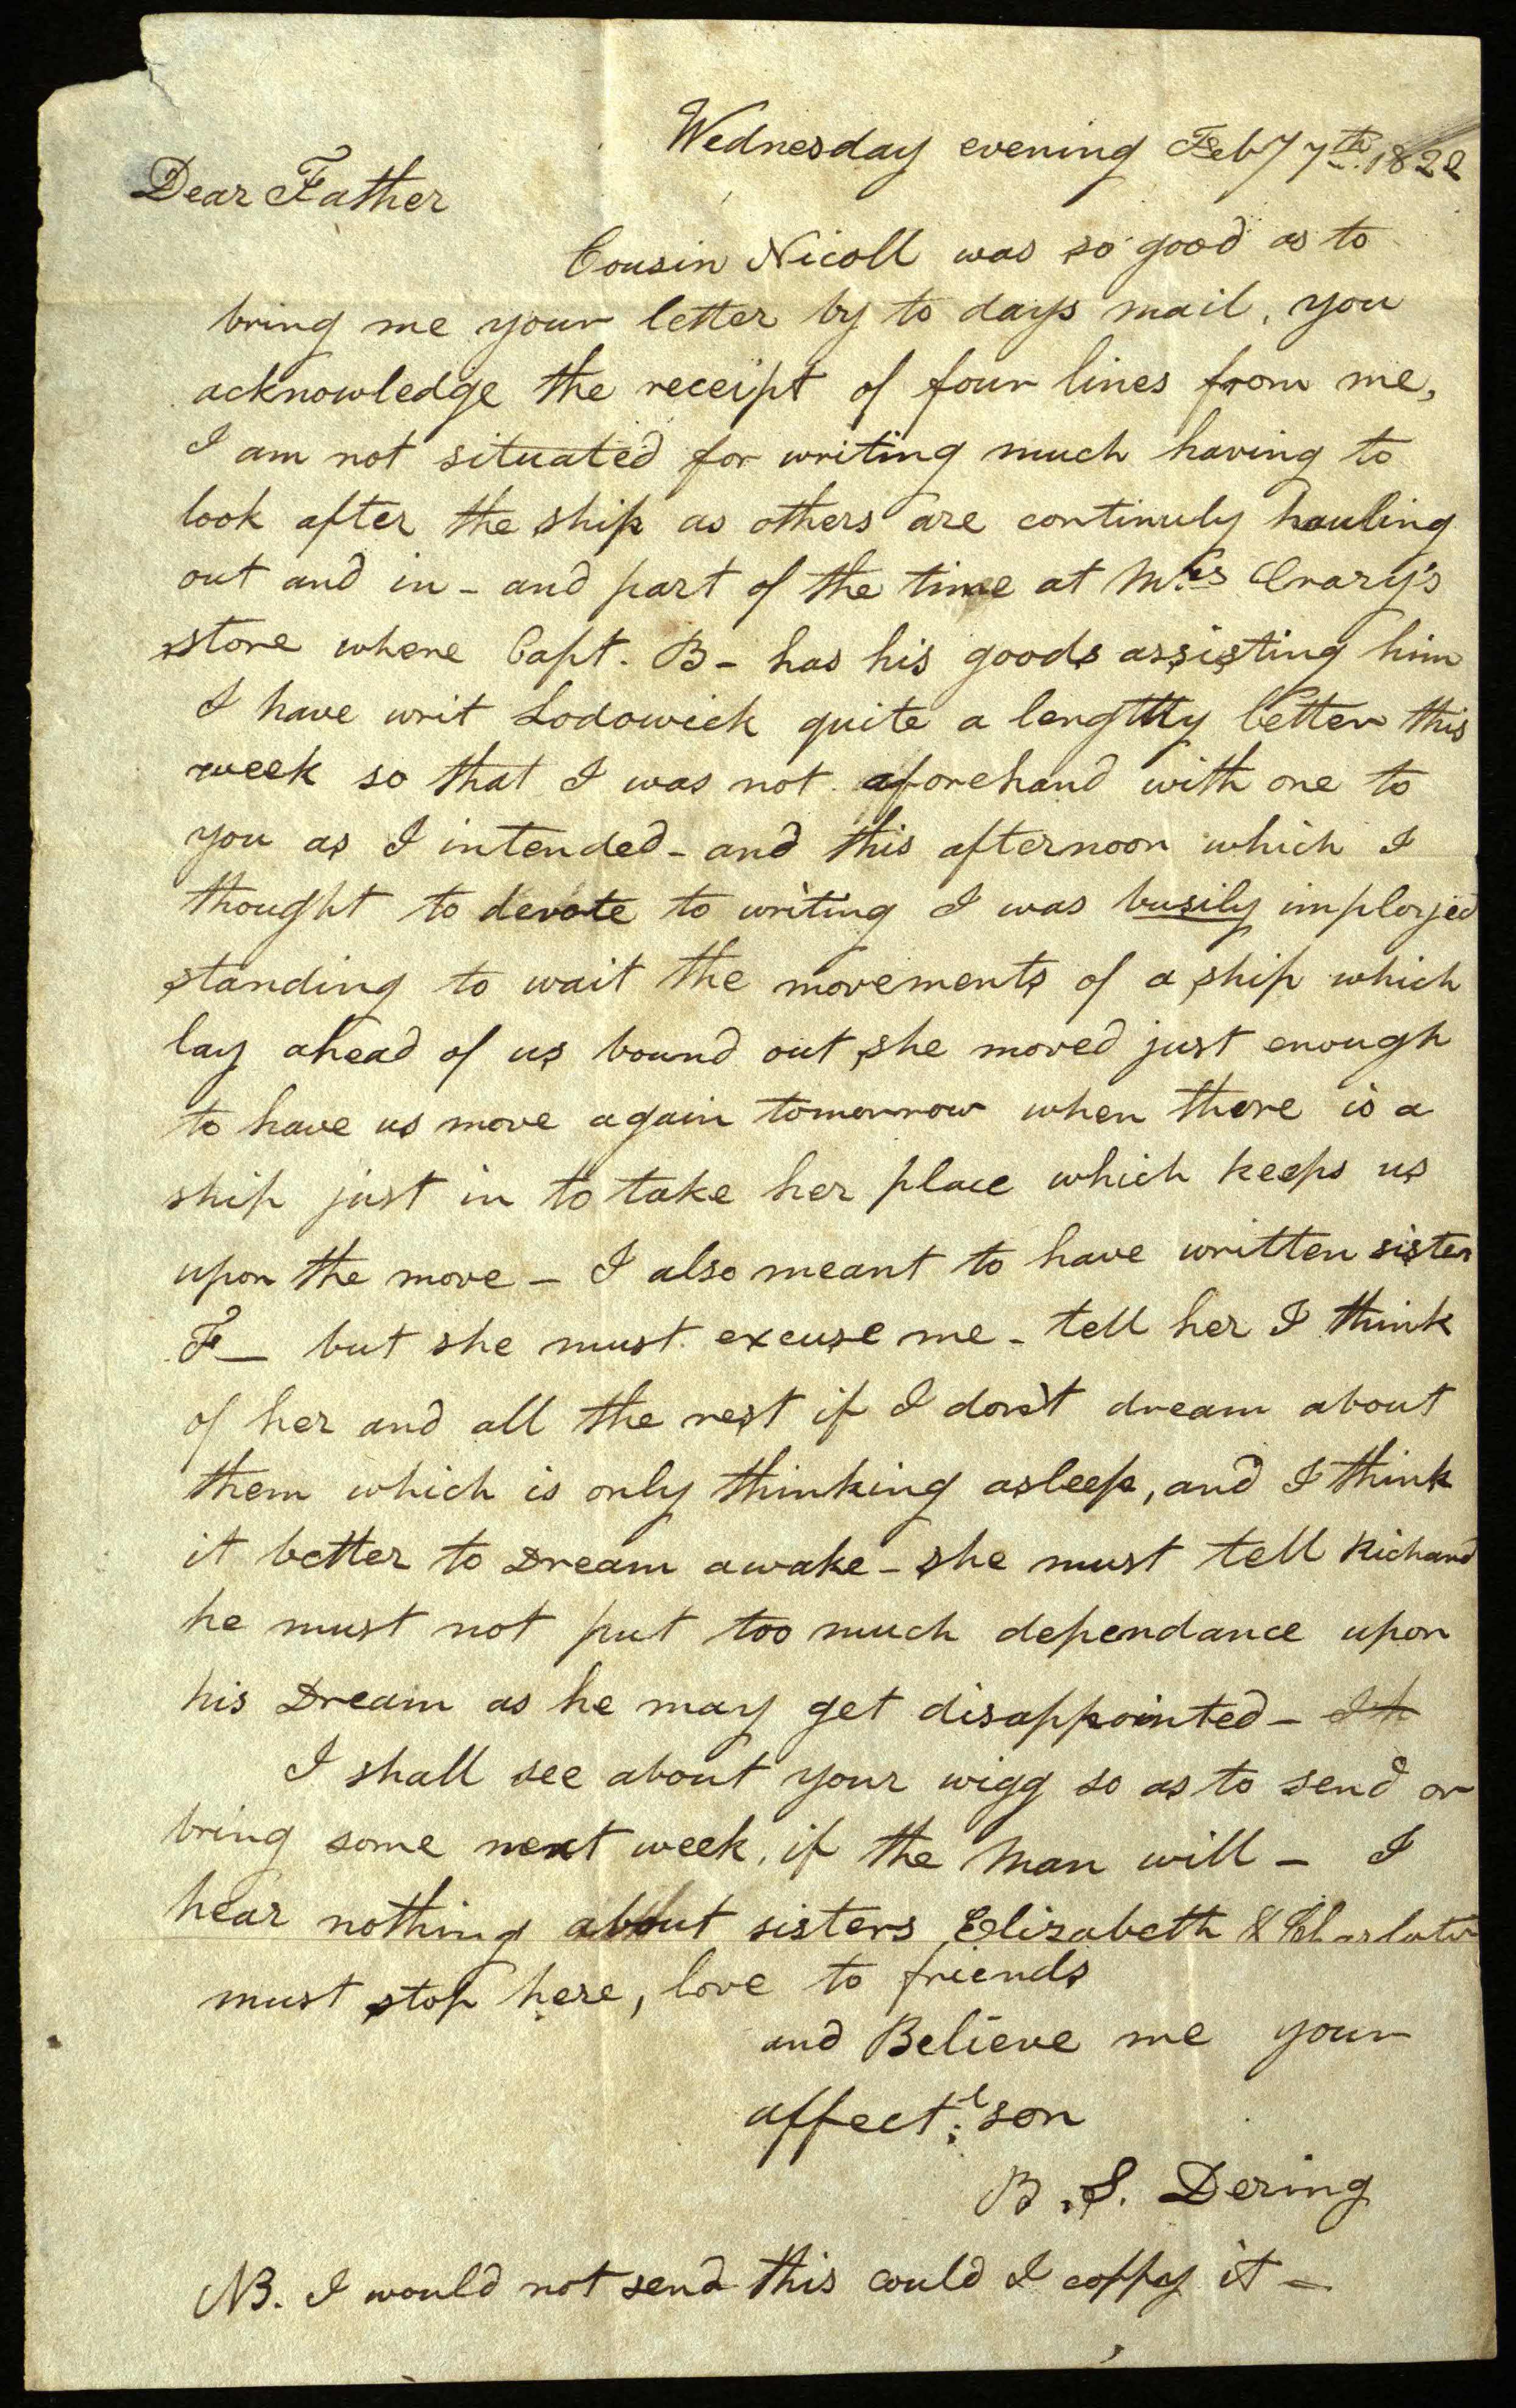 Wednesday evening Feby 7th. 1822
Dear Father
Cousin Nicoll was so good as to
bring me your letter by to days mail, you
acknowledge the receipt of four lines from me,
I am not situated for writing much having to
look after the ship as others are continuly hauling
out and in - and part of the time at Mrs Crary's
store where Capt. B - has his goods assisting him
I have writ Lodowick quite a lengthy letter this
week so that I was not aforehand with one to
you as I intended - and this afternoon which I
thought to devote to writing I was busily imployed
standing to wait the movements of a ship which
lay ahead of us bound out she moved just enough
to have us move again tomorrow when there is a
ship just in to take her place which keeps us
upon the move - I also meant to have written sister
F — but she must excuse me - tell her I think
of her and all the rest if I don't dream about
them which is only thinking asleep, and I think
it better to Dream awake - she must tell Richard
he must not put too much dependance upon
his Dream as he may get disappointed -
I shall see about your wigg so as to send or
bring some next week, if the Man will - I
hear nothing about sisters Elizabeth &
must stop here, love to friends
and Believe me your
affect: son
B. S. Dering
NB. I would not send this could I coppy it -